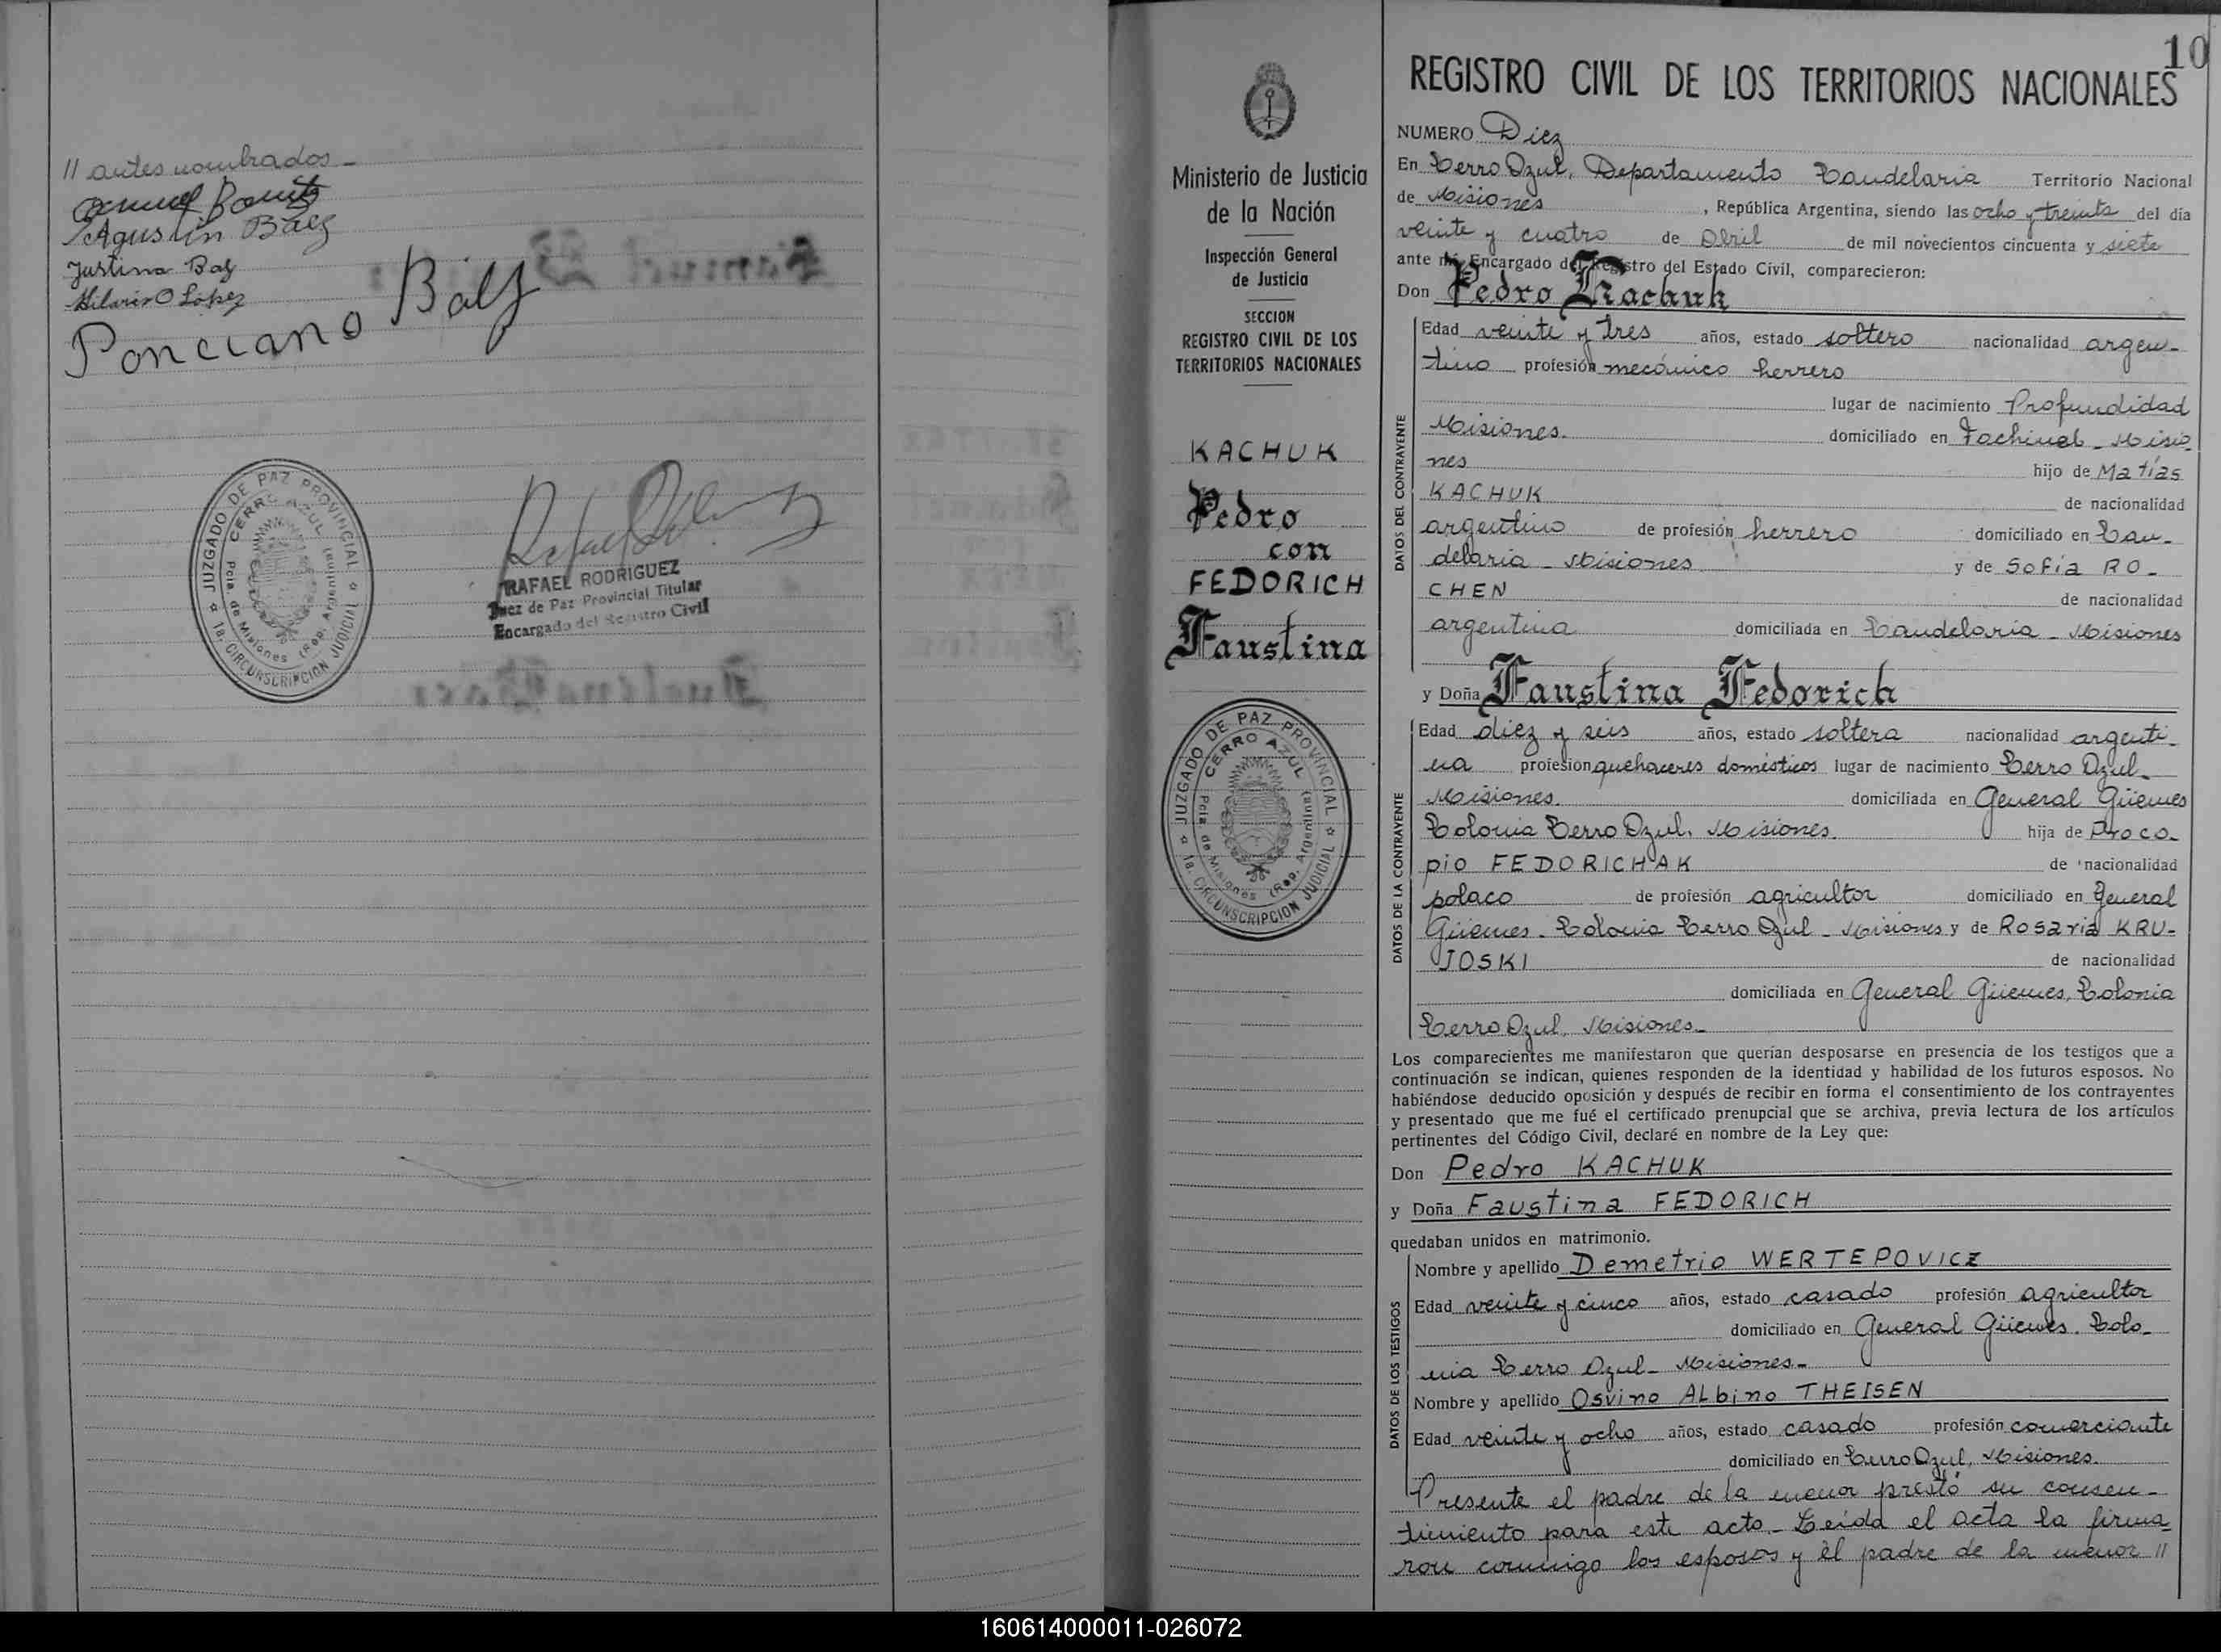 // antes nombrados_
Agustin Báez
Justina Baez
Hilario López
Ponciano Báez
JUZGADO DE PAZ PROVINCIAL
CERRO AZUL
Pcia. de Misiones (Rep. Argentina)
1a. CIRCUNSCRIPCION JUDICIAL
RAFAEL RODRIGUEZ
Juez de Paz Provincial Titular
Encargado del Registro Civil
Ministerio de Justicia
de la Nación
Inspección General
de Justicia
SECCION
REGISTRO CIVIL DE LOS
TERRITORIOS NACIONALES
KACHUK
Pedro
con
FEDORICH
Faustina
JUZGADO DE PAZ PROVINCIAL
CERRO AZUL
Pcia. de Misiones (Rep. Argentina)
1a. CIRCUNSCRIPCION JUDICIAL
10
REGISTRO CIVIL DE LOS TERRITORIOS NACIONALES
NUMERO Diez
En Cerro Azul, Departamento Candelaria Territorio Nacional
de Misiones, República Argentina, siendo las ocho y treinta del día
veinte y cuatro de Abril de mil novecientos cincuenta y siete
ante mí, Encargado del Registro del Estado Civil, comparecieron:
Don Pedro Kachuk
DATOS DEL CONTRAYENTE
Edad veinte y tres años, estado soltero nacionalidad argen-
tino profesión mecánico herrero
lugar de nacimiento Profundidad
Misiones. domiciliado en Fachinal_ Misio_
nes hijo de Matías
KACHUK de nacionalidad
argentino de profesión herrero domiciliado en Can-
delaria _ Misiones y de Sofía RO-
CHEN de nacionalidad
argentina domiciliada en Candelaria _ Misiones
y Doña Faustina Fedorich
DATOS DE LA CONTRAYENTE
Edad diez y seis años, estado soltera nacionalidad argenti_
na profesion quehaceres domésticos lugar de nacimiento Cerro Azul_
Misiones. domiciliada en General Güemes
Colonia Cerro Azul. Misiones. hija de Proco_
pio FEDORICHAK de nacionalidad
polaco de profesión agricultor domiciliado en General
Güemes_ Colonia Cerro Azul _ Misiones y de Rosaria KRU-
JOSKI de nacionalidad
domiciliada en General Güemes, Colonia
Cerro Azul, Misiones_
Los comparecientes me manifestaron que querían desposarse en presencia de los testigos que a
continuación se indican, quienes responden de la identidad y habilidad de los futuros esposos. No
habiéndose deducido oposición y después de recibir en forma el consentimiento de los contrayentes
y presentado que me fué el certificado prenupcial que se archiva, previa lectura de los artículos
pertinentes del Código Civil, declaré en nombre de la Ley que:
Don Pedro KACHUK
y Doña Faustina FEDORICH
quedaban unidos en matrimonio.
DATOS DE LOS TESTIGOS
Nombre y apellido Demetrio WERTEPOVICZ
Edad veinte y cinco años, estado casado profesión agricultor
domiciliado en General Güemes. Colo_
nia Cerro Azul_ Misiones_
Nombre y apellido Osvino Albino THEISEN
Edad veinte y ocho años, estado casado profesión comerciante
domiciliado en Cerro Azul, Misiones.
Presente el padre de la menor prestó su consen-
timiento para este acto_ Leída el acta la firma_
ron conmigo los esposos y el padre de la menor //
160614000011-026072